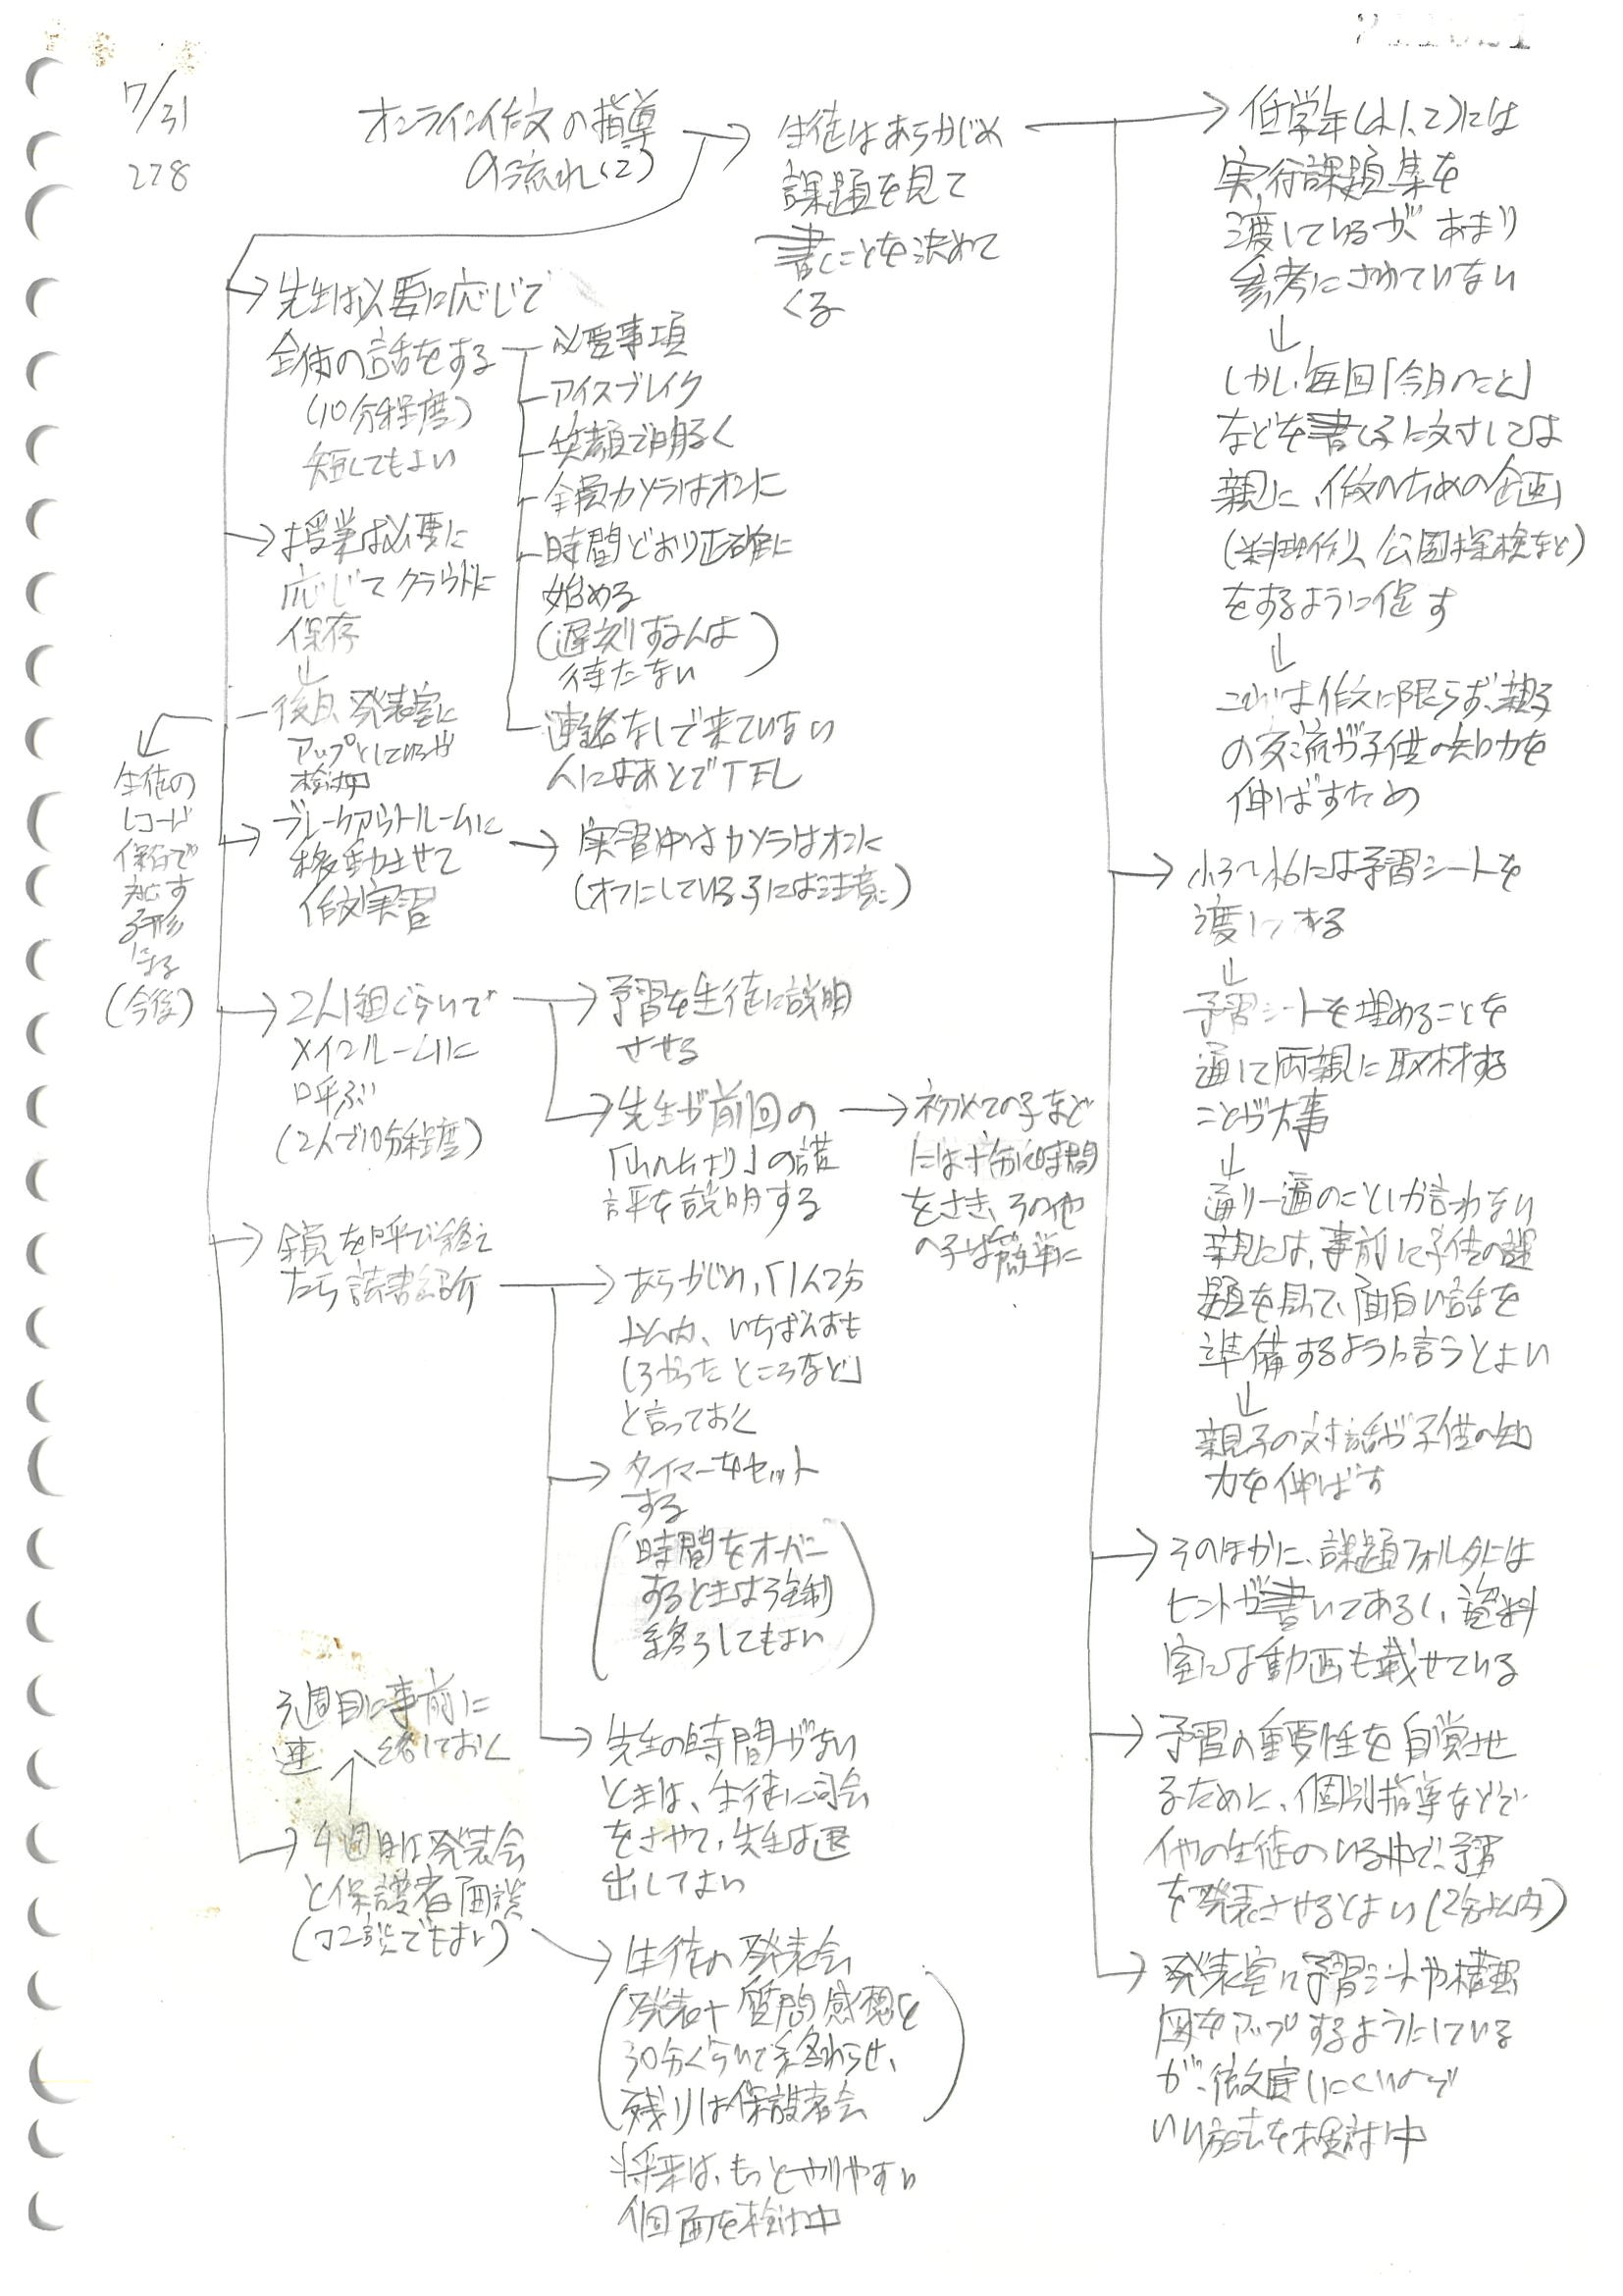 7/31
278
オンライン作文の指導
の流れ(2)
生徒はあらかじめ
課題を見て
書くことを決めて
くる
先生は必要に応じて
全体の話をする
(10分程度)
短くてもよい
必要事項
アイスブレイク
笑顔で明るく
全員カメラはオンに
時間どおり正確に
始める
(遅刻する人は
待たない)
連絡なしで来ていない
人にはあとでTEL
授業は必要に
応じてクラウドに
保存
↓
後日、発表室に
アップ
検討中
生徒の
レコード
保存で
対応す
る形
になる
(今後)
ブレークアウトルームに
移動させて
作文実習
実習中はカメラはオンに
(オフにしている子には注意)
2人1組ぐらいで
メインルームに
呼ぶ
(2人で10分程度)
予習を生徒に説明
させる
先生が前回の
「山のたより」の講
評を説明する
初めての子など
には十分に時間
をさき、その他
の子は簡単に
全員を呼び終え
たら読書紹介
あらかじめ、「1人2分
以内、いちばんおも
しろかったところなど」
と言っておく
タイマーをセット
する
(時間をオーバー
するときは強制
終了してもよい)
先生の時間がない
ときは、生徒に司会
をさせて、先生は退
出してよい
3週目に事前に
連絡しておく
4週目は発表会
と保護者面談
(でもよい)
生徒の発表会
(発表+質問感想を
30分ぐらいで終わらせ、
残りは保護者会)
将来は、もっとやりやすい
画面を検討中
低学年(小1、2)には
実行課題集を
渡しているが、あまり
参考にされていない
↓
しかし、毎回「今日のこと」
などを書く子に対しては
親に、作文のための企画
(料理作り、公園探検など)
をするように促す
↓
これは作文に限らず、親子
の交流が子供の知力を
伸ばすため
小3〜小6には予習シートを
渡してある
↓
予習シートを埋めることを
通して両親に取材する
ことが大事
↓
通り一遍のことしか言わない
親には、事前に子供の課
題を見て、面白い話を
準備するように言うとよい
↓
親子の対話が子供の知
力を伸ばす
そのほかに、課題フォルダには
ヒントが書いてあるし、資料
室には動画も載せている
予習の重要性を自覚させ
るために、個別指導などで
他の生徒のいる中で、予習
を発表させるとよい(2分以内)
発表室に予習シートや構想
図をアップするようにしている
が、しにくいので
いい方法を検討中